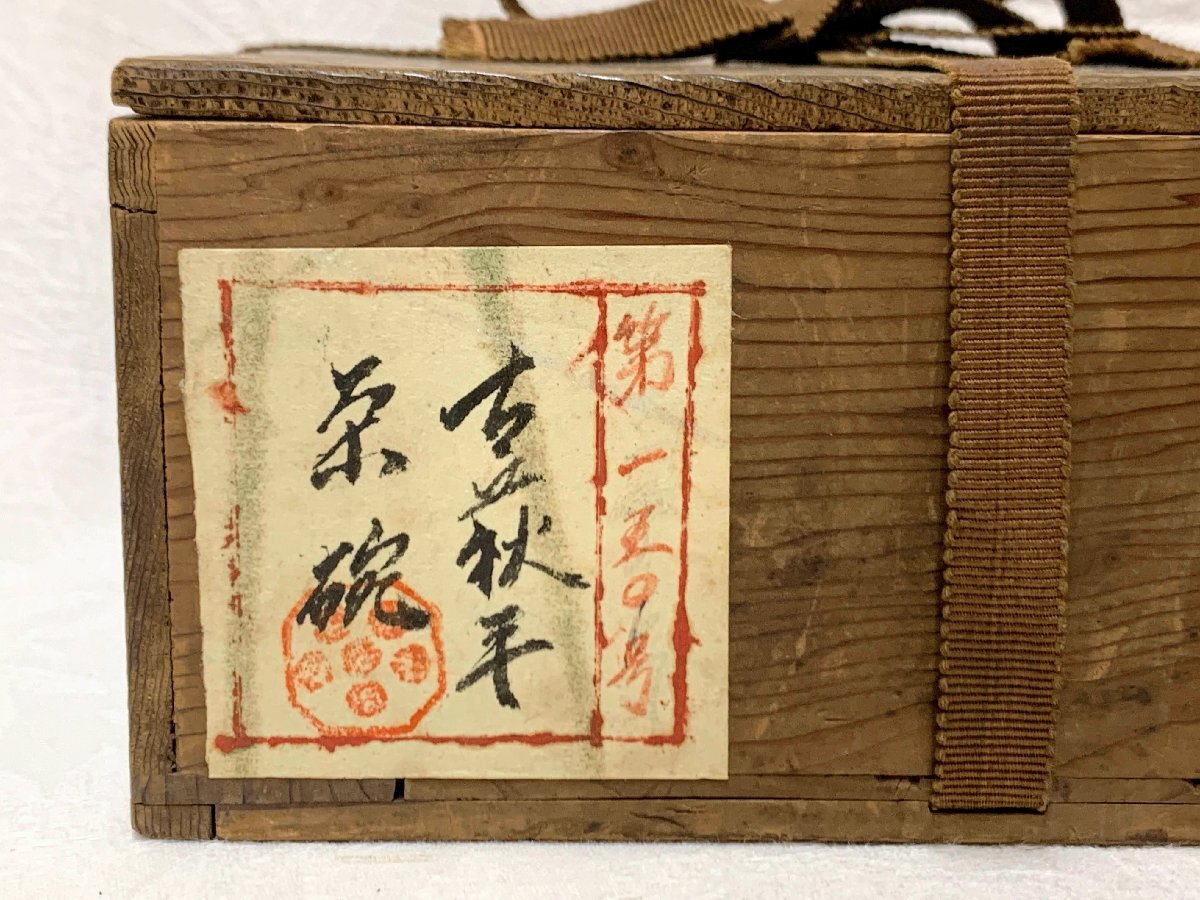 第一五〇号
古萩平
茶碗